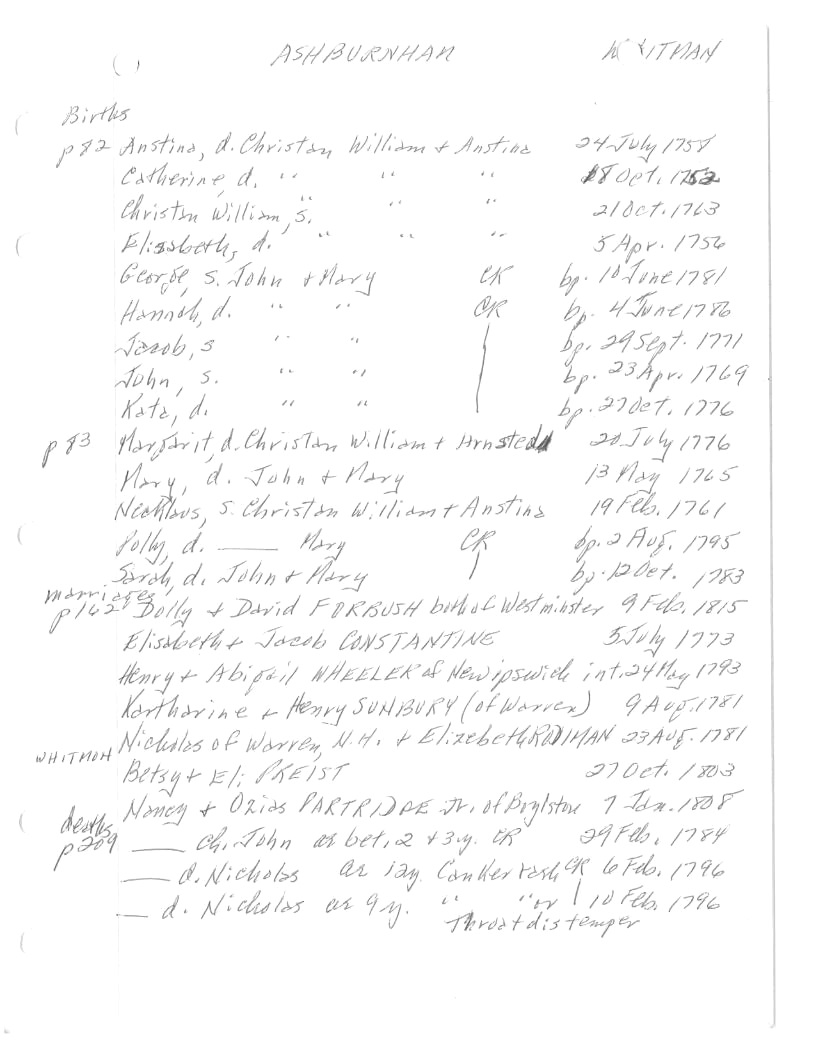 ( ) ASHBURNHAM WHITMAN
Births
p 82 Anstina, d. Christan William + Anstina 24 July 1758
Catherine, d. " " " 18 Oct. 1752
Christan William, s. " " 21 Oct. 1763
Elisabeth, d. " " " 5 Apr. 1756
George, s. John + Mary CR bp. 10 June 1781
Hannah, d. " " CR bp. 4 June 1786
Jacob, s " " bp. 29 Sept. 1771
John, s. " " bp. 23 Apr. 1769
Kata, d. " " bp. 27 Oct. 1776
p 83 Margarit, d. Christan William + Arnsted 20 July 1776
Mary, d. John + Mary 13 May 1765
Necklaus, s. Christan William + Anstina 19 Feb. 1761
Polly, d. ____ Mary CR bp. 2 Aug. 1795
Sarah, d. John + Mary bp. 12 Oct. 1783
marriages
p 162 Dolly + David FORBUSH both of Westminster 9 Feb. 1815
Elisabeth + Jacob CONSTANTINE 5 July 1773
Henry + Abigail WHEELER of New ipswich int. 24 May 1793
Kartharine + Henry SUNBURY (of Warren) 9 Aug. 1781
Nicholas of Warren, N.H. + Elizebeth RODIMAN 23 Aug. 1781
WHITMOH
Betsy + Eli 27 Oct. 1803
Nancy + Ozias PARTRIDGE Jr. of Boylston 7 Jan. 1808
deaths
p 209 ____ ch. John ae bet. 2 + 3 y. CR 29 Feb. 1784
____ d. Nicholas ae 12y. Canker rash CR 6 Feb. 1796
____ d. Nicholas ae 9 y. " " or 10 Feb. 1796
Throat distemper